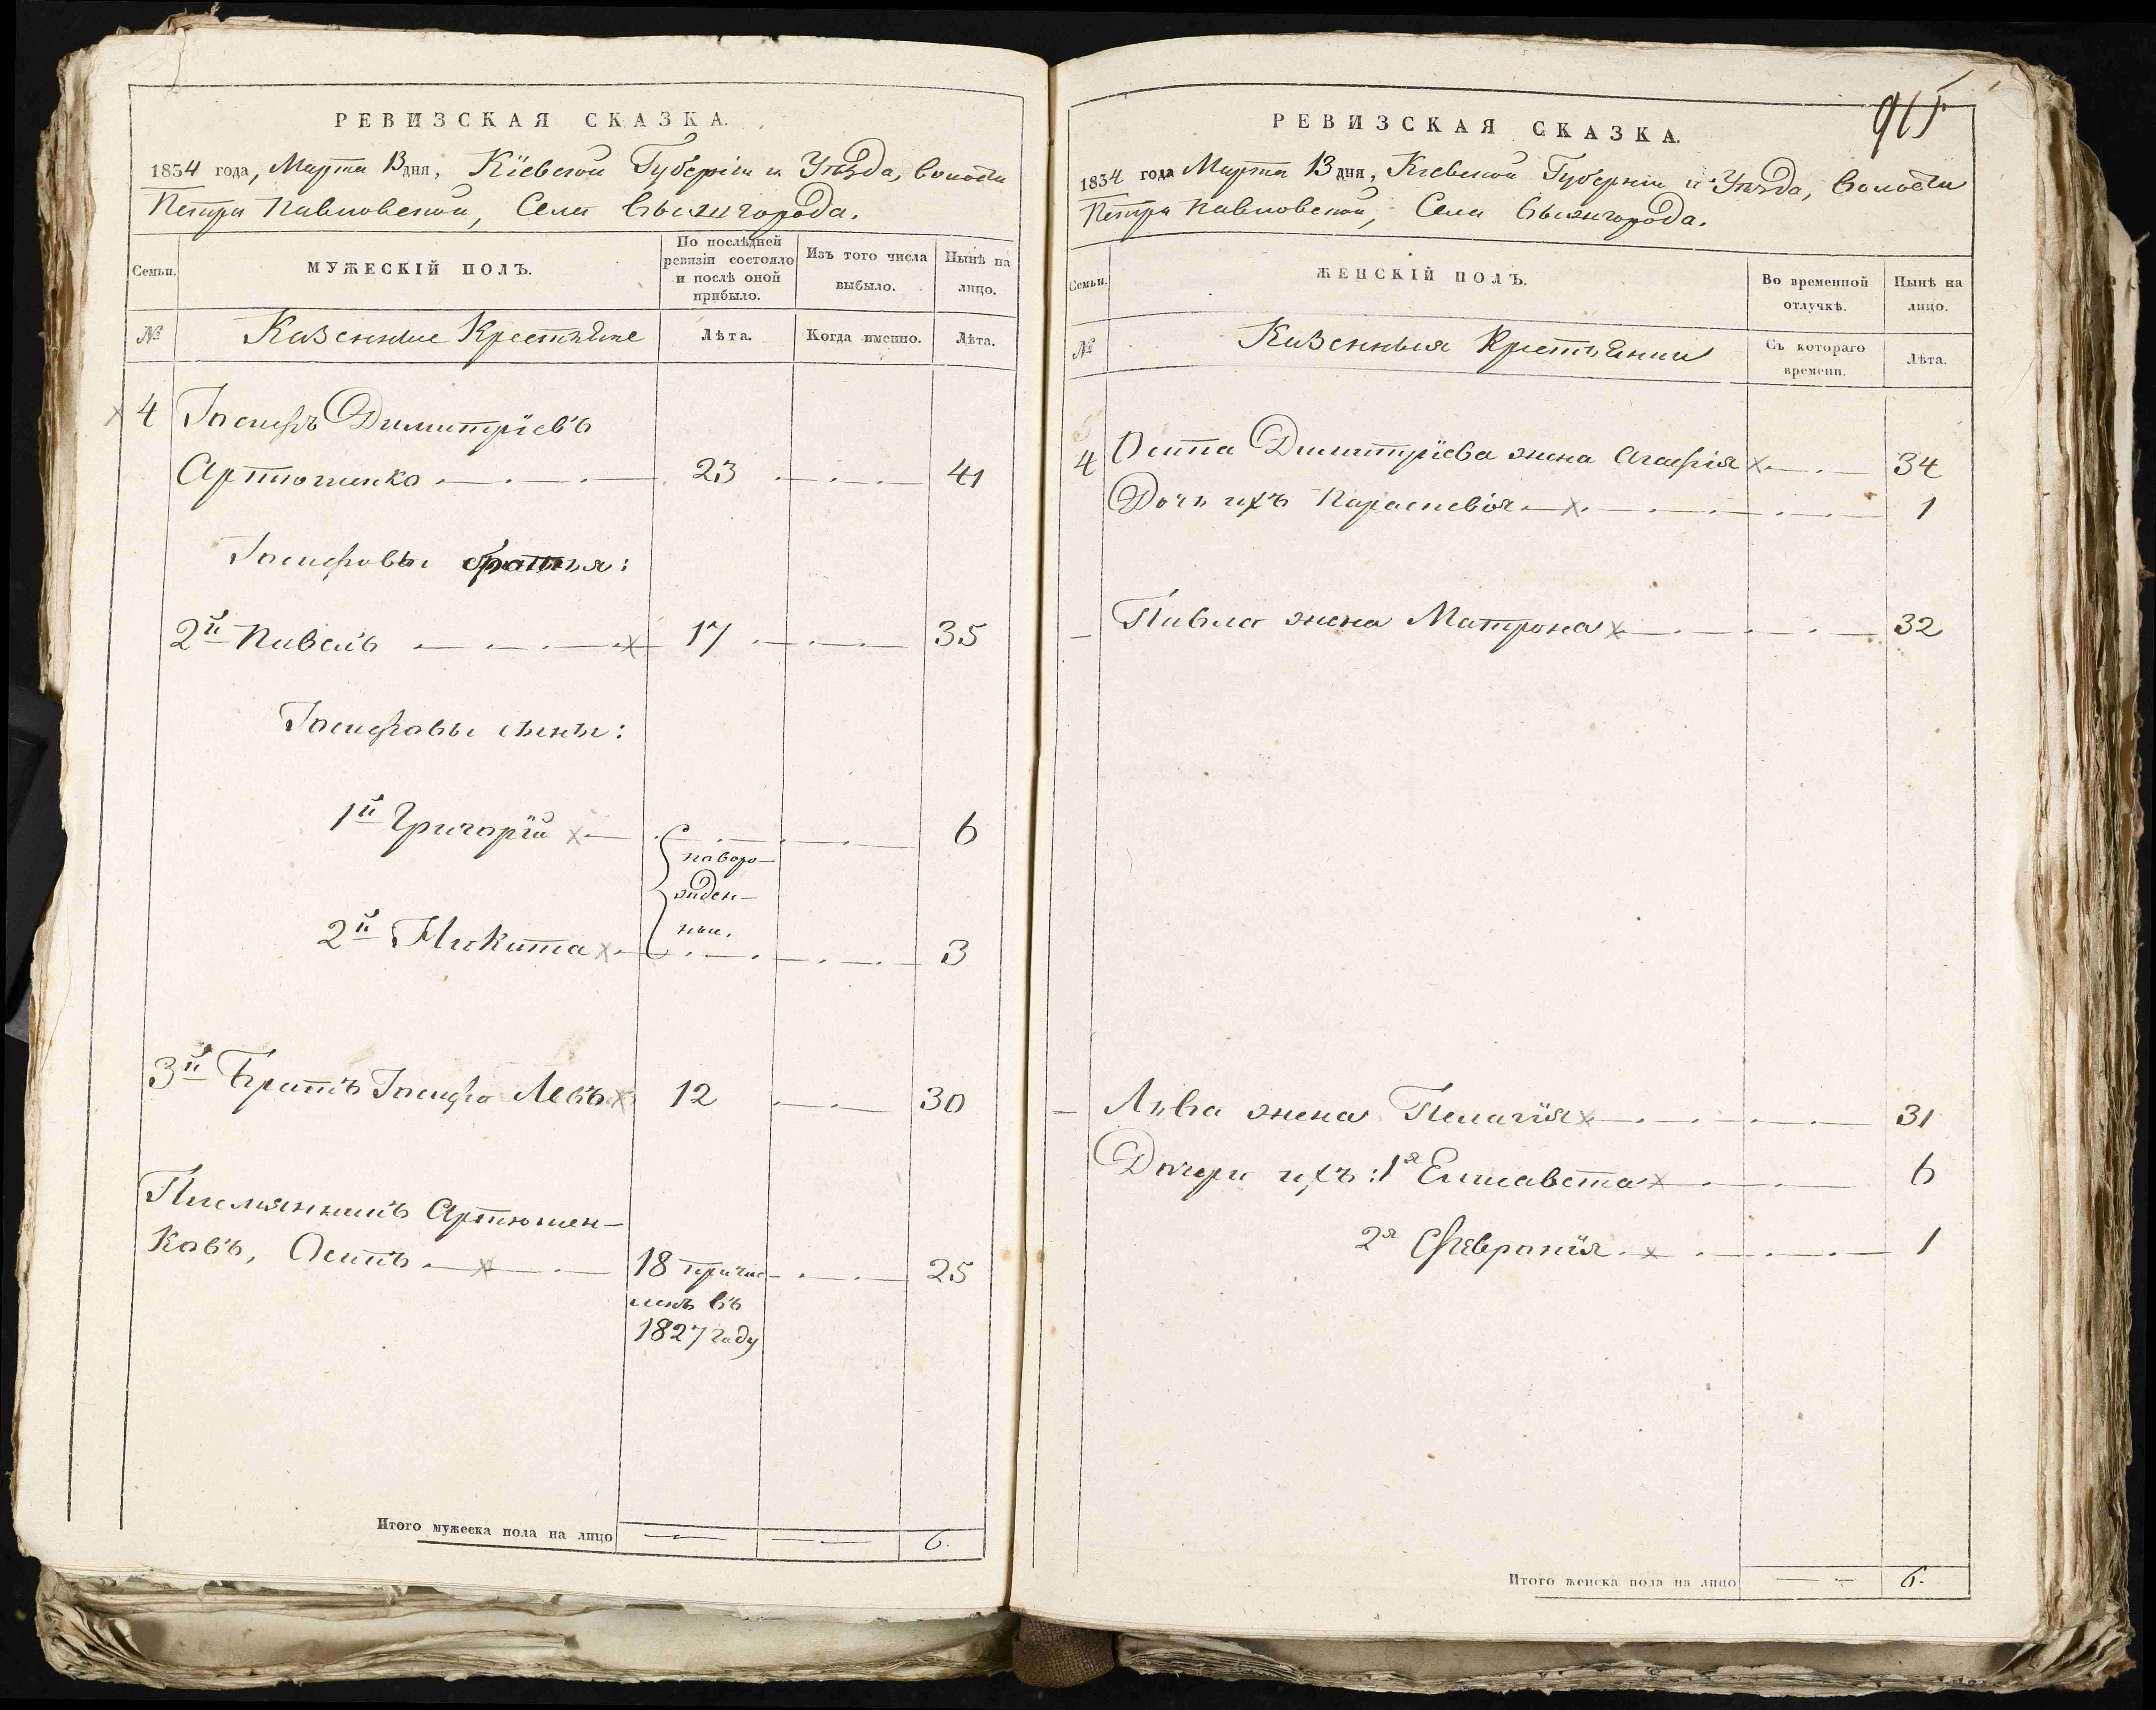 РЕВИЗСКАЯ СКАЗКА.
1834 года, Марта 13 дня, Кіевской Губерніи и Уѣзда, Волости
Петро Павловской, Села Вышгорода.
Семьи.
МУЖЕСКІЙ ПОЛЪ.
По послѣдней ревизіи состояло и послѣ оной прибыло.
Изъ того числа выбыло.
Нынѣ на лицо.
№
Казенные Крестьяне
Лѣта.
Когда именно.
Лѣта.
4 Іосифъ Димитріевъ
Артюшенко 23 41
Іосифовы братья:
2й Павелъ 17 35
Іосифовы сыны:
1й Григорій 6
новоро-
жден-
ные.
2й Никита 3
3й Братъ Іосифа Левъ 12 30
Племянникъ Артюшен-
ковъ, Осипъ 18 причис- 25
ленъ въ
1827 году
Итого мужеска пола на лицо 6.
915
РЕВИЗСКАЯ СКАЗКА.
1834 года Марта 13 дня, Кіевской Губерніи и Уѣзда, Волости
Петро Павловской, Села Вышгорода.
Семьи.
ЖЕНСКІЙ ПОЛЪ.
Во временной отлучкѣ.
Нынѣ на лицо.
№
Казенныя Крестьянки
Съ котораго времени.
Лѣта.
4 Осипа Димитріева жена Агафія 34
Дочь ихъ Параскевія 1
Павла жена Матрона 32
Льва жена Пелагія 31
Дочери ихъ: 1я Елисавета 6
2я Февронія 1
Итого женска пола на лицо 6.